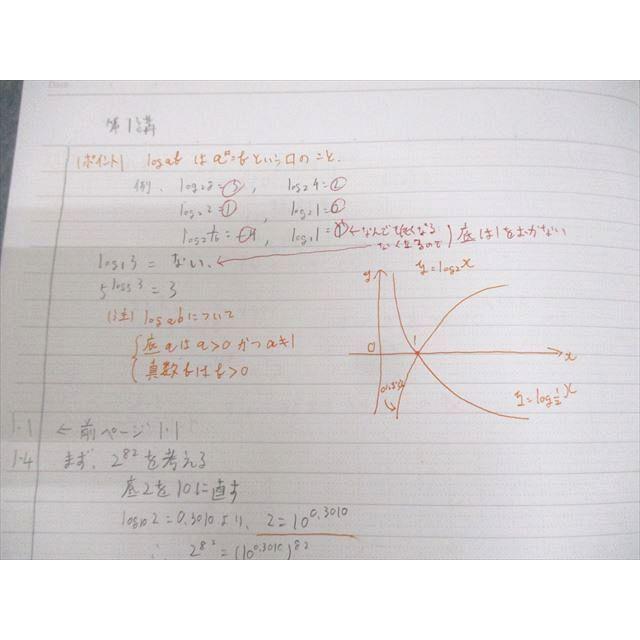 第1講
[ポイント] logab は a□=b という□のこと.
例. log28=3, log24=2
log22=1, log21=0
log2 1/16=-4, log11=
なんでもよくなる
底は1をおかない
log13 = ない.
5^log53 = 3
(注) logabについて
底aはa>0かつa≠1
真数bはb>0
y=log2x
y
0
1
x
y=log1/2x
1・1 ←前ページ1・1
1・4 まず、2^82を考える
底2を10に直す
log102=0.3010より、2=10^0.3010
∴ 2^82=(10^0.3010)^82